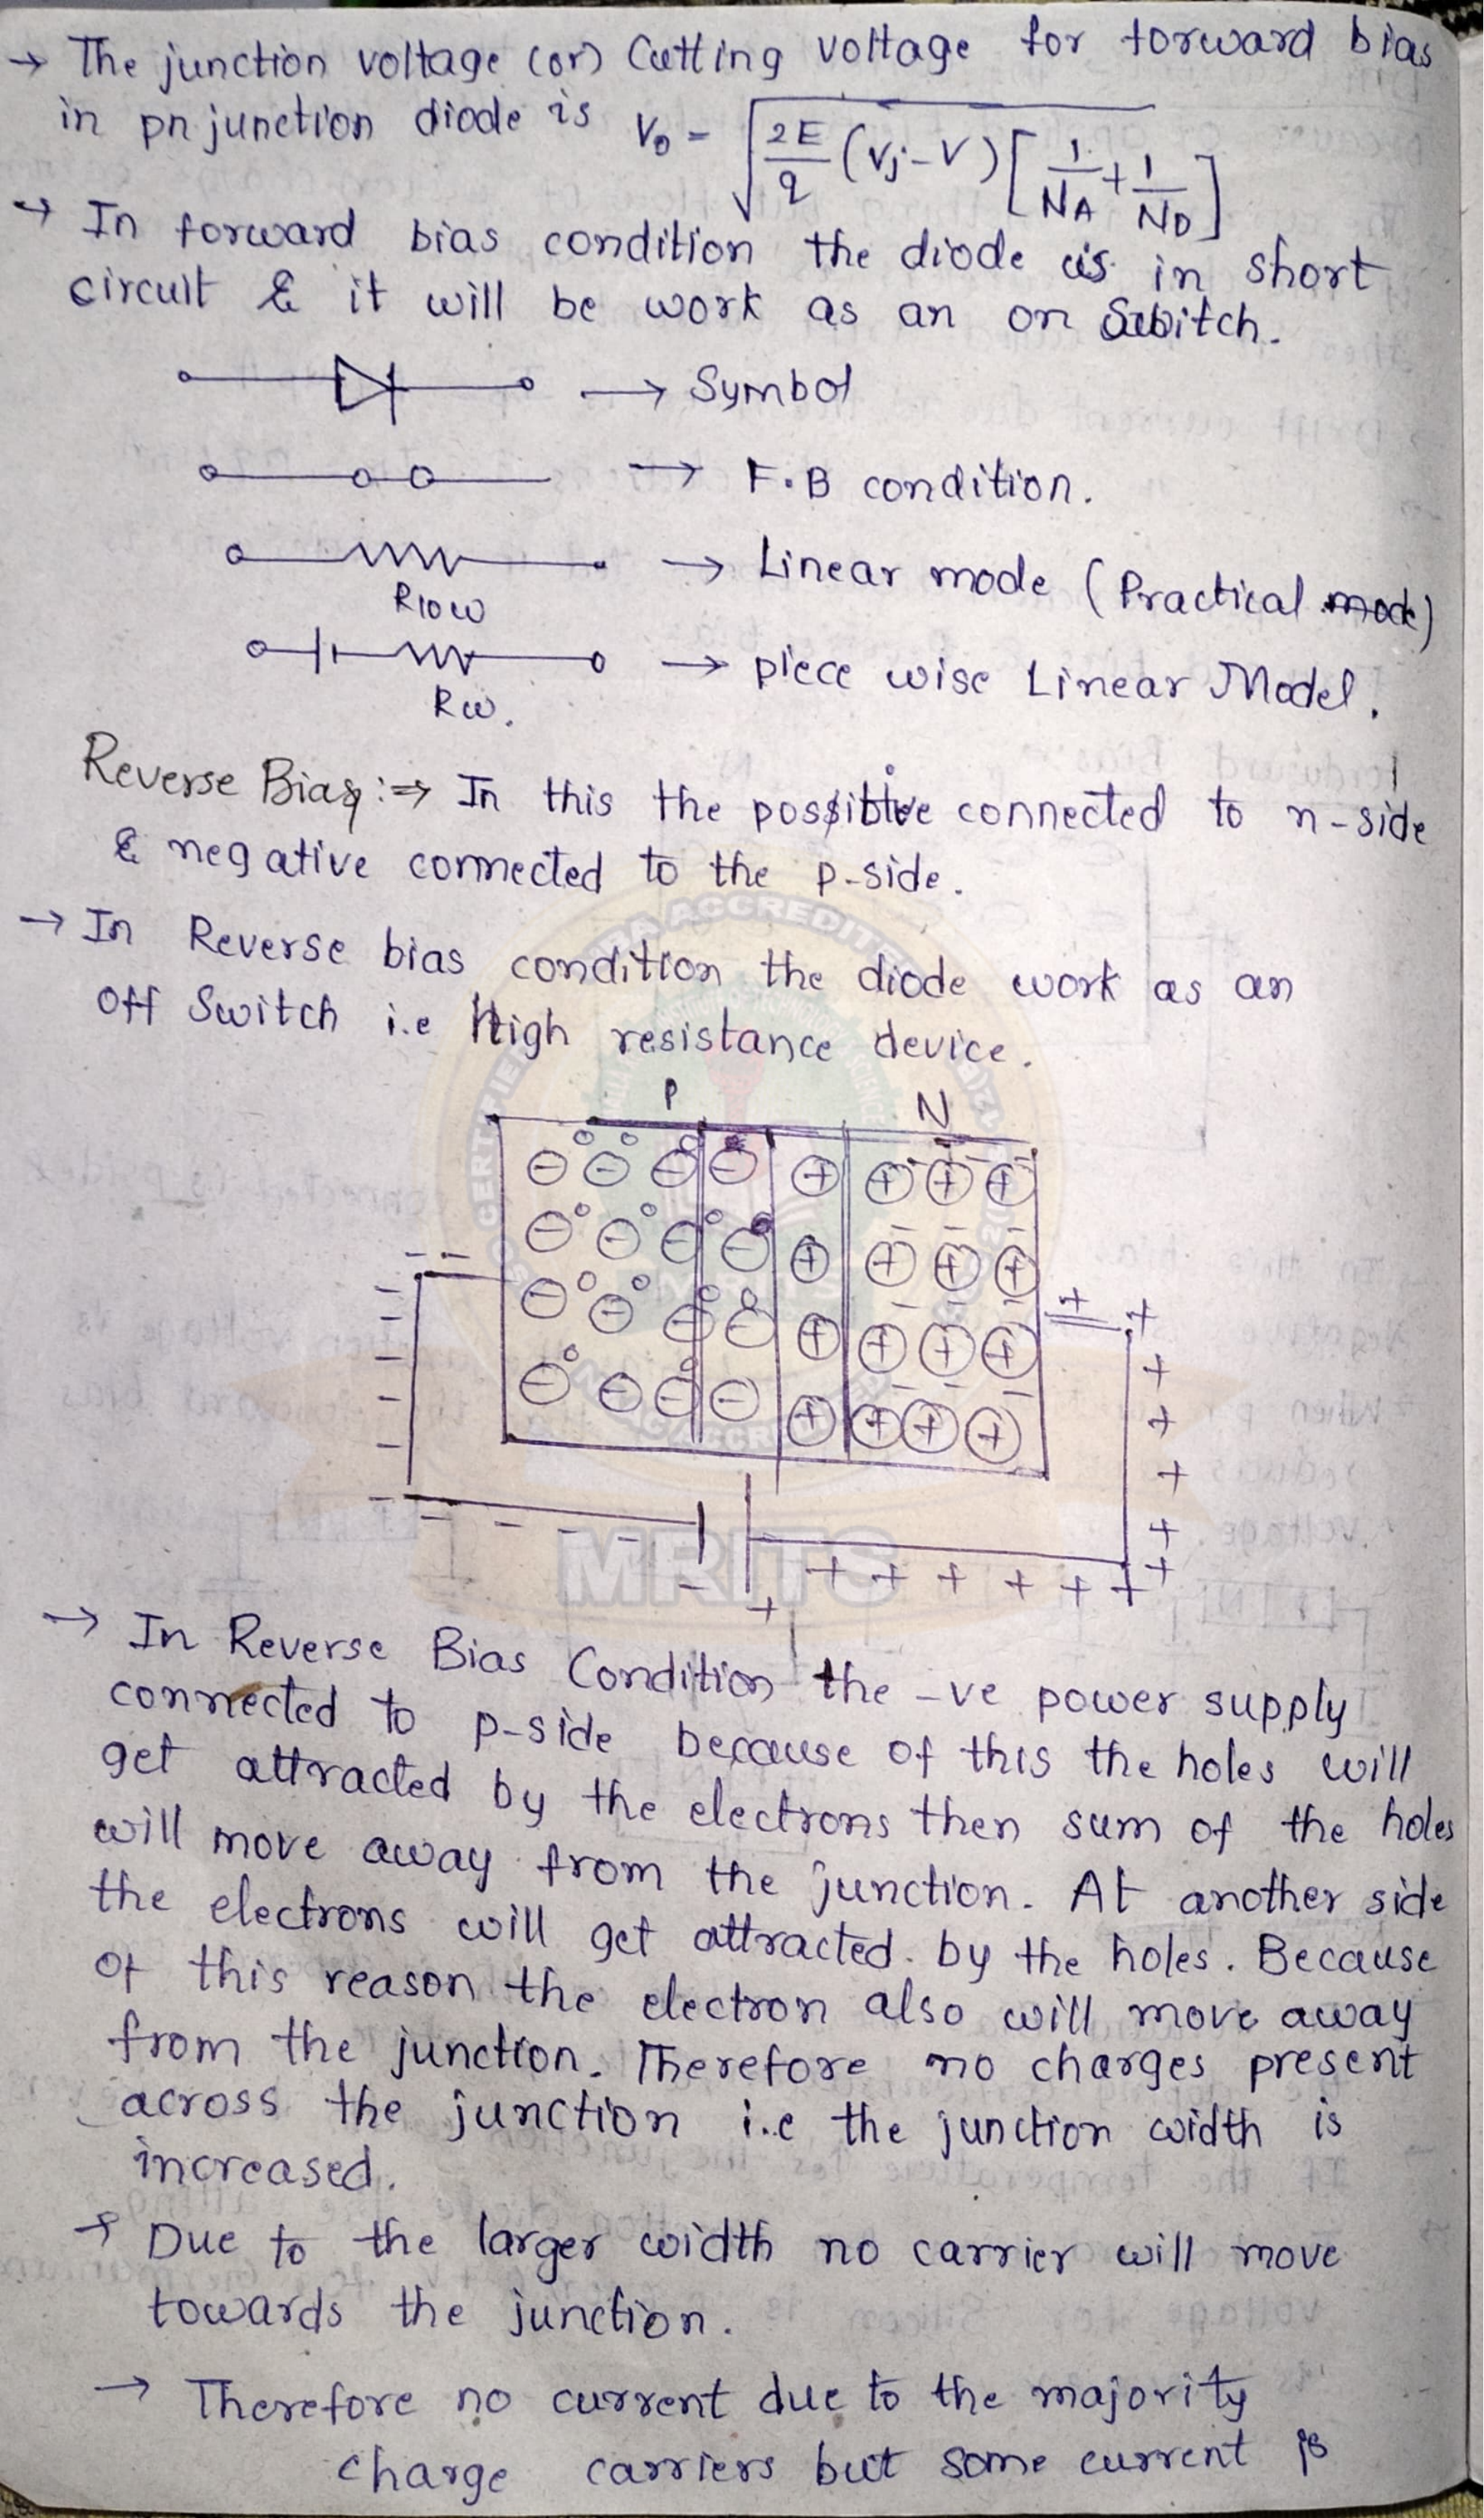 → The junction voltage (or) Cutting voltage for forward bias
in pn junction diode is V₀ = √(2E/q (Vj - V) [1/NA + 1/ND])
→ In forward bias condition the diode is in short
circuit & it will be work as an on Switch.
→ Symbol
→ F.B condition.
→ Linear mode (Practical mode)
Rlow
→ piece wise Linear Model.
Rw.
Reverse Bias :⇒ In this the possitive connected to n-side
& negative connected to the p-side.
→ In Reverse bias condition the diode work as an
off Switch i.e High resistance device.
P N
MRITS
→ In Reverse Bias Condition the -ve power supply
connected to p-side because of this the holes will
get attracted by the electrons then sum of the holes
will move away from the junction. At another side
the electrons will get attracted by the holes. Because
of this reason the electron also will move away
from the junction. Therefore no charges present
across the junction i.e the junction width is
increased.
→ Due to the larger width no carrier will move
towards the junction.
→ Therefore no current due to the majority
charge carriers but some current is